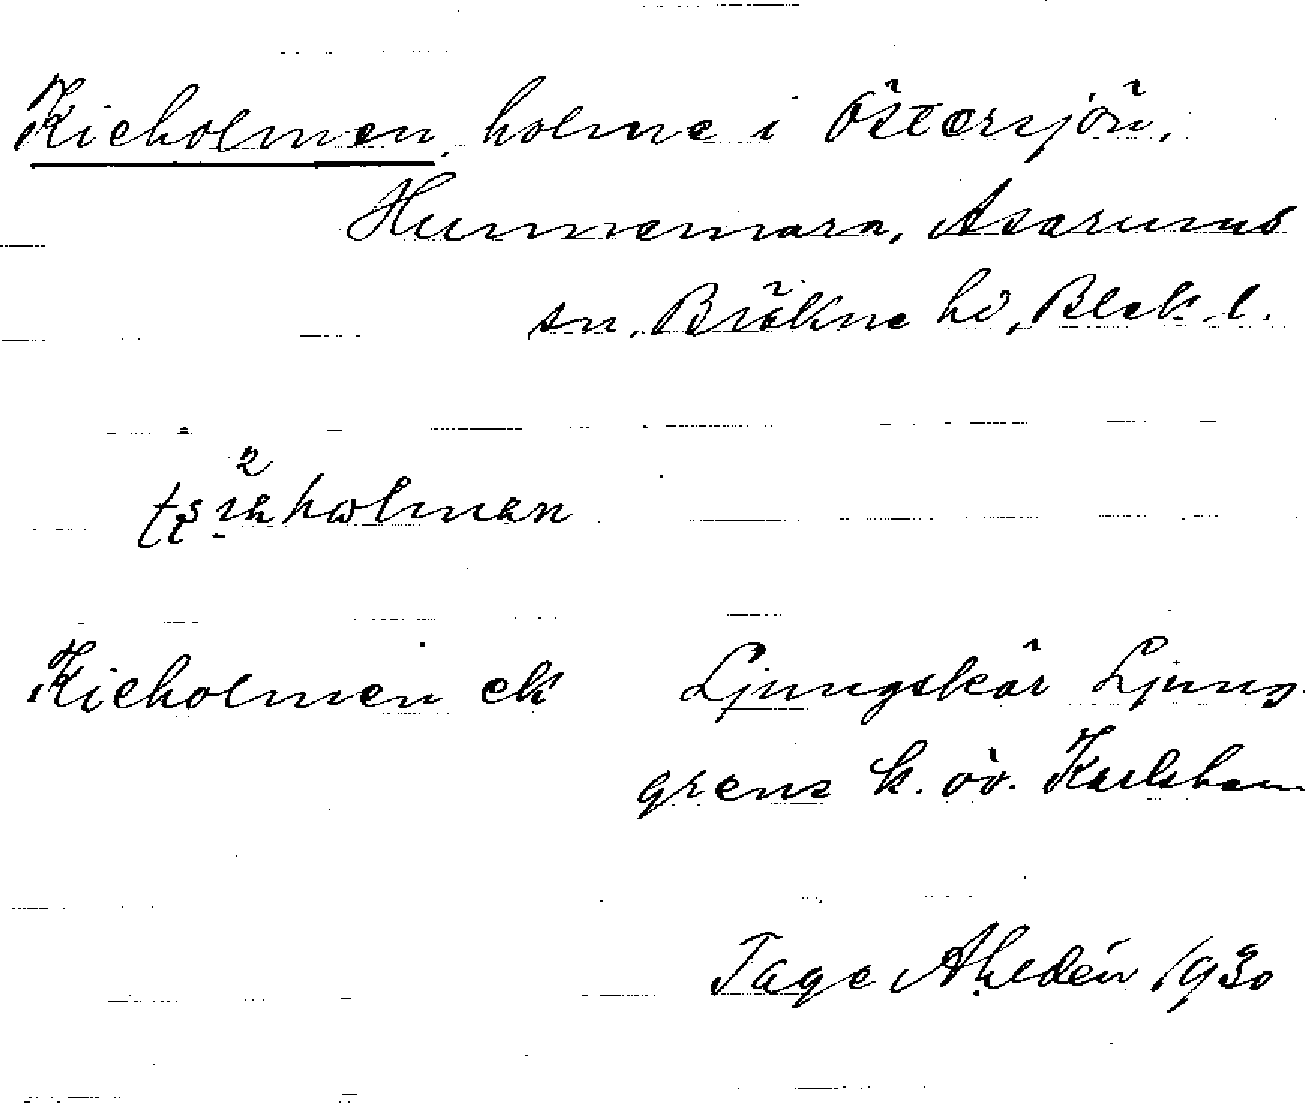 Kieholmen, holme i Östersjön,
Hunnemara, Asarums
sn, Bräkne hd, Blek. l.
Kieholmen ek Ljungskär Ljung-
grens k. öv. Karlshamn
Tage Ahldén 1930